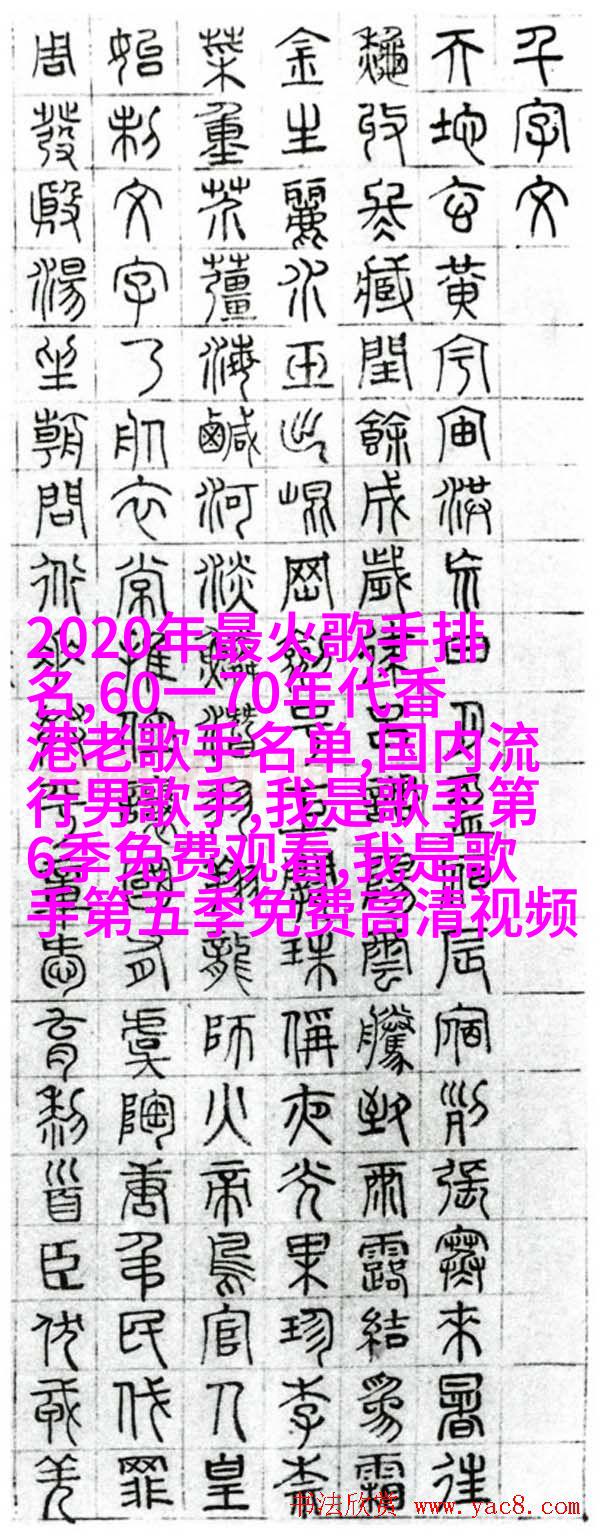 千字文
天地玄黃宇宙洪荒日月盈昃辰宿列張寒來暑往
秋收冬藏閏餘成歲律呂調陽雲騰致雨露結為霜
金生麗水玉出崑岡劍號巨闕珠稱夜光果珍李柰
菜重芥薑海鹹河淡鱗潛羽翔龍師火帝鳥官人皇
始制文字乃服衣裳推位讓國有虞陶唐弔民伐罪
周發殷湯坐朝問道垂拱平章愛育黎首臣伏戎羌
2020年最火歌手排
名,60一70年代香
港老歌手名单,国内流
行男歌手,我是歌手第
6季免费观看,我是歌
手第五季免费高清视频
书法欣赏 www.yac8.com